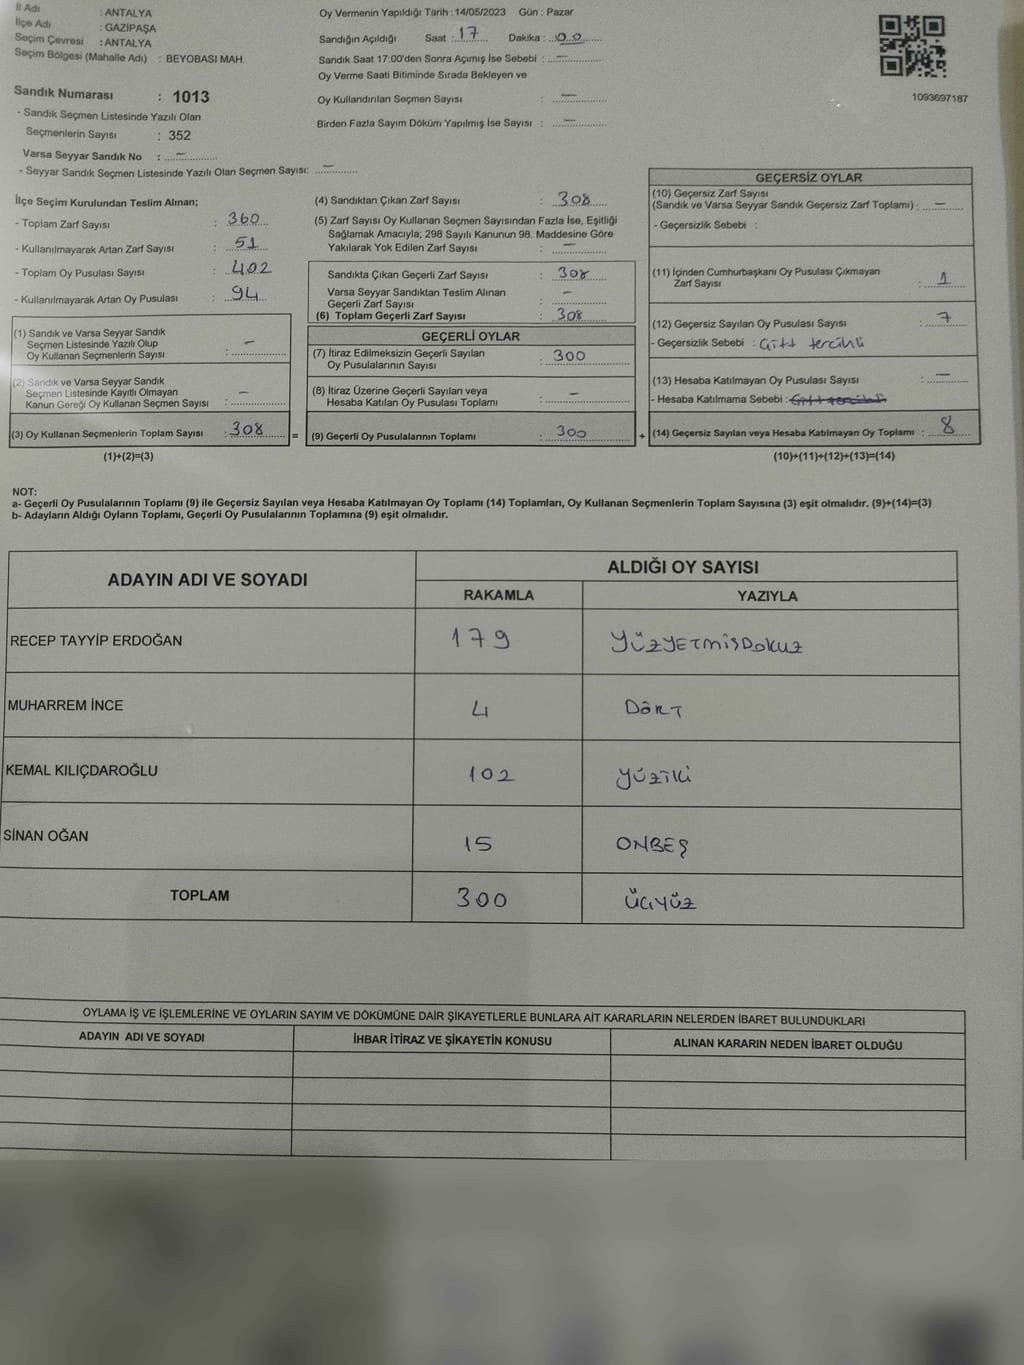 İl Adı : ANTALYA
İlçe Adı : GAZİPAŞA
Seçim Çevresi : ANTALYA
Seçim Bölgesi (Mahalle Adı) : BEYOBASI MAH.
Sandık Numarası : 1013
- Sandık Seçmen Listesinde Yazılı Olan
Seçmenlerin Sayısı : 352
Varsa Seyyar Sandık No : —
- Seyyar Sandık Seçmen Listesinde Yazılı Olan Seçmen Sayısı: —
Oy Vermenin Yapıldığı Tarih : 14/05/2023 Gün : Pazar
Sandığın Açıldığı Saat : 17 Dakika : 00
Sandık Saat 17:00'den Sonra Açımış İse Sebebi : —
Oy Verme Saati Bitiminde Sırada Bekleyen ve
Oy Kullandırılan Seçmen Sayısı : —
Birden Fazla Sayım Döküm Yapılmış İse Sayısı : —
1093697187
İlçe Seçim Kurulundan Teslim Alınan;
- Toplam Zarf Sayısı : 360
- Kullanılmayarak Artan Zarf Sayısı : 51
- Toplam Oy Pusulası Sayısı : 402
- Kullanılmayarak Artan Oy Pusulası : 94
(1) Sandık ve Varsa Seyyar Sandık
Seçmen Listesinde Yazılı Olup
Oy Kullanan Seçmenlerin Sayısı : —
(2) Sandık ve Varsa Seyyar Sandık
Seçmen Listesinde Kayıtlı Olmayan
Kanun Gereği Oy Kullanan Seçmen Sayısı : —
(3) Oy Kullanan Seçmenlerin Toplam Sayısı : 308
(1)+(2)=(3)
(4) Sandıktan Çıkan Zarf Sayısı : 308
(5) Zarf Sayısı Oy Kullanan Seçmen Sayısından Fazla İse, Eşitliği
Sağlamak Amacıyla; 298 Sayılı Kanunun 98. Maddesine Göre
Yakılarak Yok Edilen Zarf Sayısı : —
Sandıkta Çıkan Geçerli Zarf Sayısı : 308
Varsa Seyyar Sandıktan Teslim Alınan
Geçerli Zarf Sayısı : —
(6) Toplam Geçerli Zarf Sayısı : 308
GEÇERLİ OYLAR
(7) İtiraz Edilmeksizin Geçerli Sayılan
Oy Pusulalarının Sayısı : 300
(8) İtiraz Üzerine Geçerli Sayılan veya
Hesaba Katılan Oy Pusulası Toplamı : —
= (9) Geçerli Oy Pusulalarının Toplamı : 300
GEÇERSİZ OYLAR
(10) Geçersiz Zarf Sayısı
(Sandık ve Varsa Seyyar Sandık Geçersiz Zarf Toplamı) : —
- Geçersizlik Sebebi :
(11) İçinden Cumhurbaşkanı Oy Pusulası Çıkmayan
Zarf Sayısı : 1
(12) Geçersiz Sayılan Oy Pusulası Sayısı : 7
- Geçersizlik Sebebi : Çift tercihli
(13) Hesaba Katılmayan Oy Pusulası Sayısı : —
- Hesaba Katılmama Sebebi :
+ (14) Geçersiz Sayılan veya Hesaba Katılmayan Oy Toplamı : 8
(10)+(11)+(12)+(13)=(14)
NOT:
a- Geçerli Oy Pusulalarının Toplamı (9) ile Geçersiz Sayılan veya Hesaba Katılmayan Oy Toplamı (14) Toplamları, Oy Kullanan Seçmenlerin Toplam Sayısına (3) eşit olmalıdır. (9)+(14)=(3)
b- Adayların Aldığı Oyların Toplamı, Geçerli Oy Pusulalarının Toplamına (9) eşit olmalıdır.
ADAYIN ADI VE SOYADI
ALDIĞI OY SAYISI
RAKAMLA YAZIYLA
RECEP TAYYİP ERDOĞAN 179 YÜZYETMİŞDOKUZ
MUHARREM İNCE 4 DÖRT
KEMAL KILIÇDAROĞLU 102 YÜZİKİ
SİNAN OĞAN 15 ONBEŞ
TOPLAM 300 ÜÇYÜZ
OYLAMA İŞ VE İŞLEMLERİNE VE OYLARIN SAYIM VE DÖKÜMÜNE DAİR ŞİKAYETLERLE BUNLARA AİT KARARLARIN NELERDEN İBARET BULUNDUKLARI
ADAYIN ADI VE SOYADI İHBAR İTİRAZ VE ŞİKAYETİN KONUSU ALINAN KARARIN NEDEN İBARET OLDUĞU